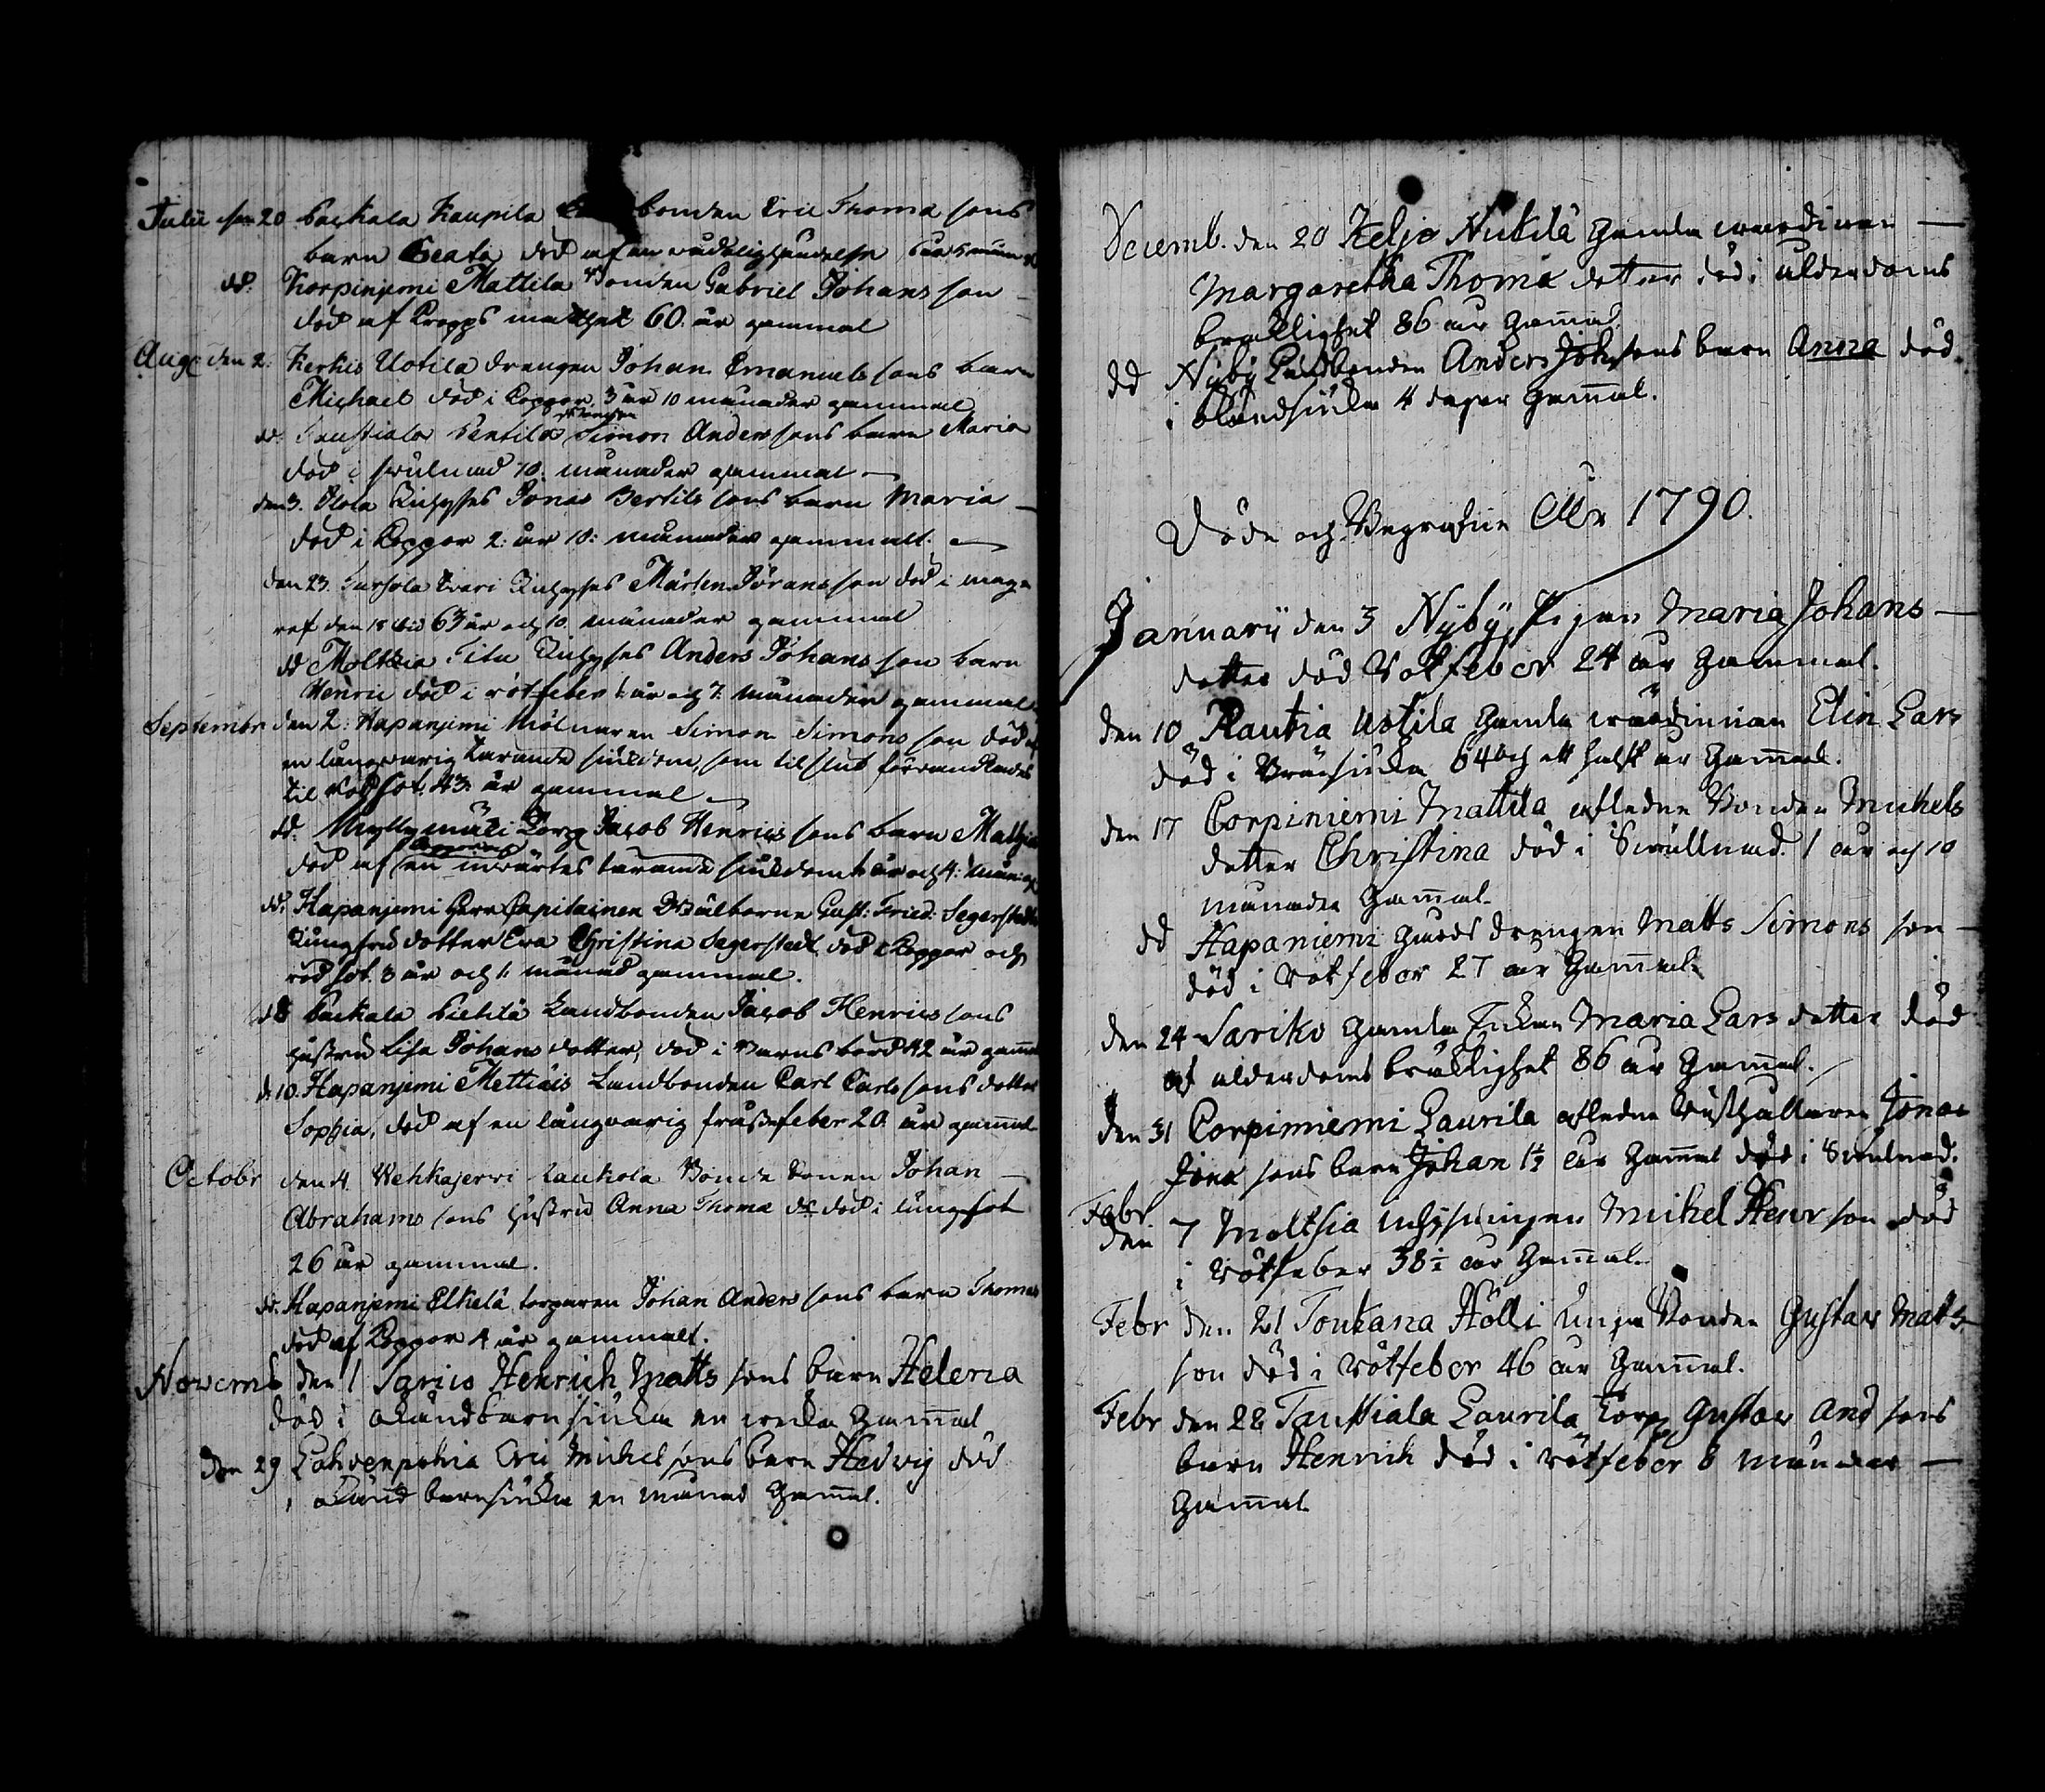 Julii den 20 Packala Kaupila bonden Eric Thomæ sons
barn Beata död af en wådelig händelse
dd. Korpinjemi Mattila Bonden Gabriel Johans son
död af Kropps matthet 60. år gammal
Aug: den 2. Kerkis Uotila drengen Johan Emanuels sons barn
Michael död i Koppor 3 år 10 månader gammal
dd. Taustiala Pentila drengen Simon Anders sons barn Maria
död i swulnad 10. månader gammal
den 3. Inhyses Jonas Bertils sons barn Maria
död i Koppor 2: år 10: månader gammalt.
den 23. Tursola Inhyses Mårten Jörans son död i mag
ref den 18 63 år och 10 månader gammal
dd Moltzia Inhyses Anders Johans son barn
Henric död i rötfeber 1: år och 7: månader gammal
Septembr den 2: Hapanjemi Mölnaren Simon Simons son död af
en långwarig tärande siukdom, som til slut förwandlades
til rödsot. 43: år gammal
dd. Myllymäki Torp: Jacob Henrics sons barn Mathias
död af Kopporne en inwärtes tärande siukdom 1: år och 4: mån: g
dd. Hapanjemi Herr Capitainen Wälborne Gust: Fried: Segerstedts
Jungfru dotter Eva Christina Segerstedt död i Koppor och
röd sot. 3 år och 1: månad gammal.
d 8 Packala Pietilä Landbonden Jacob Henrics sons
hustru Lisa Johans dotter, död i Barns börd 42 år gam̄al
d. 10. Hapanjemi Mettiäis Landbonden Carl Carls sons dotter
Sophia, död af en långwarig frässefeber 20 år gam̄al
Octobr den 4. Wehkajerwi Laukola Bonde Sonen Johan
Abrahams sons hustru Anna Thomæ dr död i lungsot
26 år gammal.
dr. Hapanjemi Elkelä torparen Johan Anders sons barn Thomas
död af Koppor 4 år gammalt.
Novemb den 1 Sarico Henrich Matts sons barn Helena
död i okänd barnsiuka en wecka Gam̄al
den 29 Lahdenpohia Eric Michels sons barn Hedvig död
i okänd barnsiuka en månad Gam̄al.
Decemb. den 20 Keljo Nickilä Gamla wärdinnan
Margaretha Thomæ dotter död i ålderdoms
bräcklighet 86 år Gam̄al.
dd Nyby Landbonden Anders Johs sons barn Anna död
i okändsiuka 4 dagar Gam̄al.
Döde och Begrafne Åhr 1790.
Januarii den 3 Nyby, Pigan Maria Johans
dotter död Rötfeber 24 år Gammal.
den 10 Rautia Uotila Gamla wärdinnan Elin Lars
död i Bråsiuka 64 och ett halft år Gam̄al.
den 17 Corpiniemi Mattila afledne Bonden Mickels
dotter Christina död i Swullnad. 1 år och 10
månader Gam̄al.
dd Hapaniemi Gårds drengen Matts Simons son
död i rötfeber 27 år Gam̄al.
den 24 Sariko Gamla Enkan Maria Lars dotter död
af ålderdoms bräcklighet 86 år Gam̄al.
den 31 Corpiniemi Laurila afledne Rusthållaren Jonas
Jona sons barn Johan 1½ år Gam̄al död i Swulnad.
Febr.
den 7 Moltsia inhysningen Mickel Henr son död
i rötfeber 38½ år Gam̄al.
Febr den 21 Toukana Hölli unga Bonden Gustav Matts
son död i rötfeber 46 år Gam̄al.
Febr den 28 Taustiala Laurila Torp: Gustav And sons
barn Henrich död i rötfeber 8 månader
Gam̄al